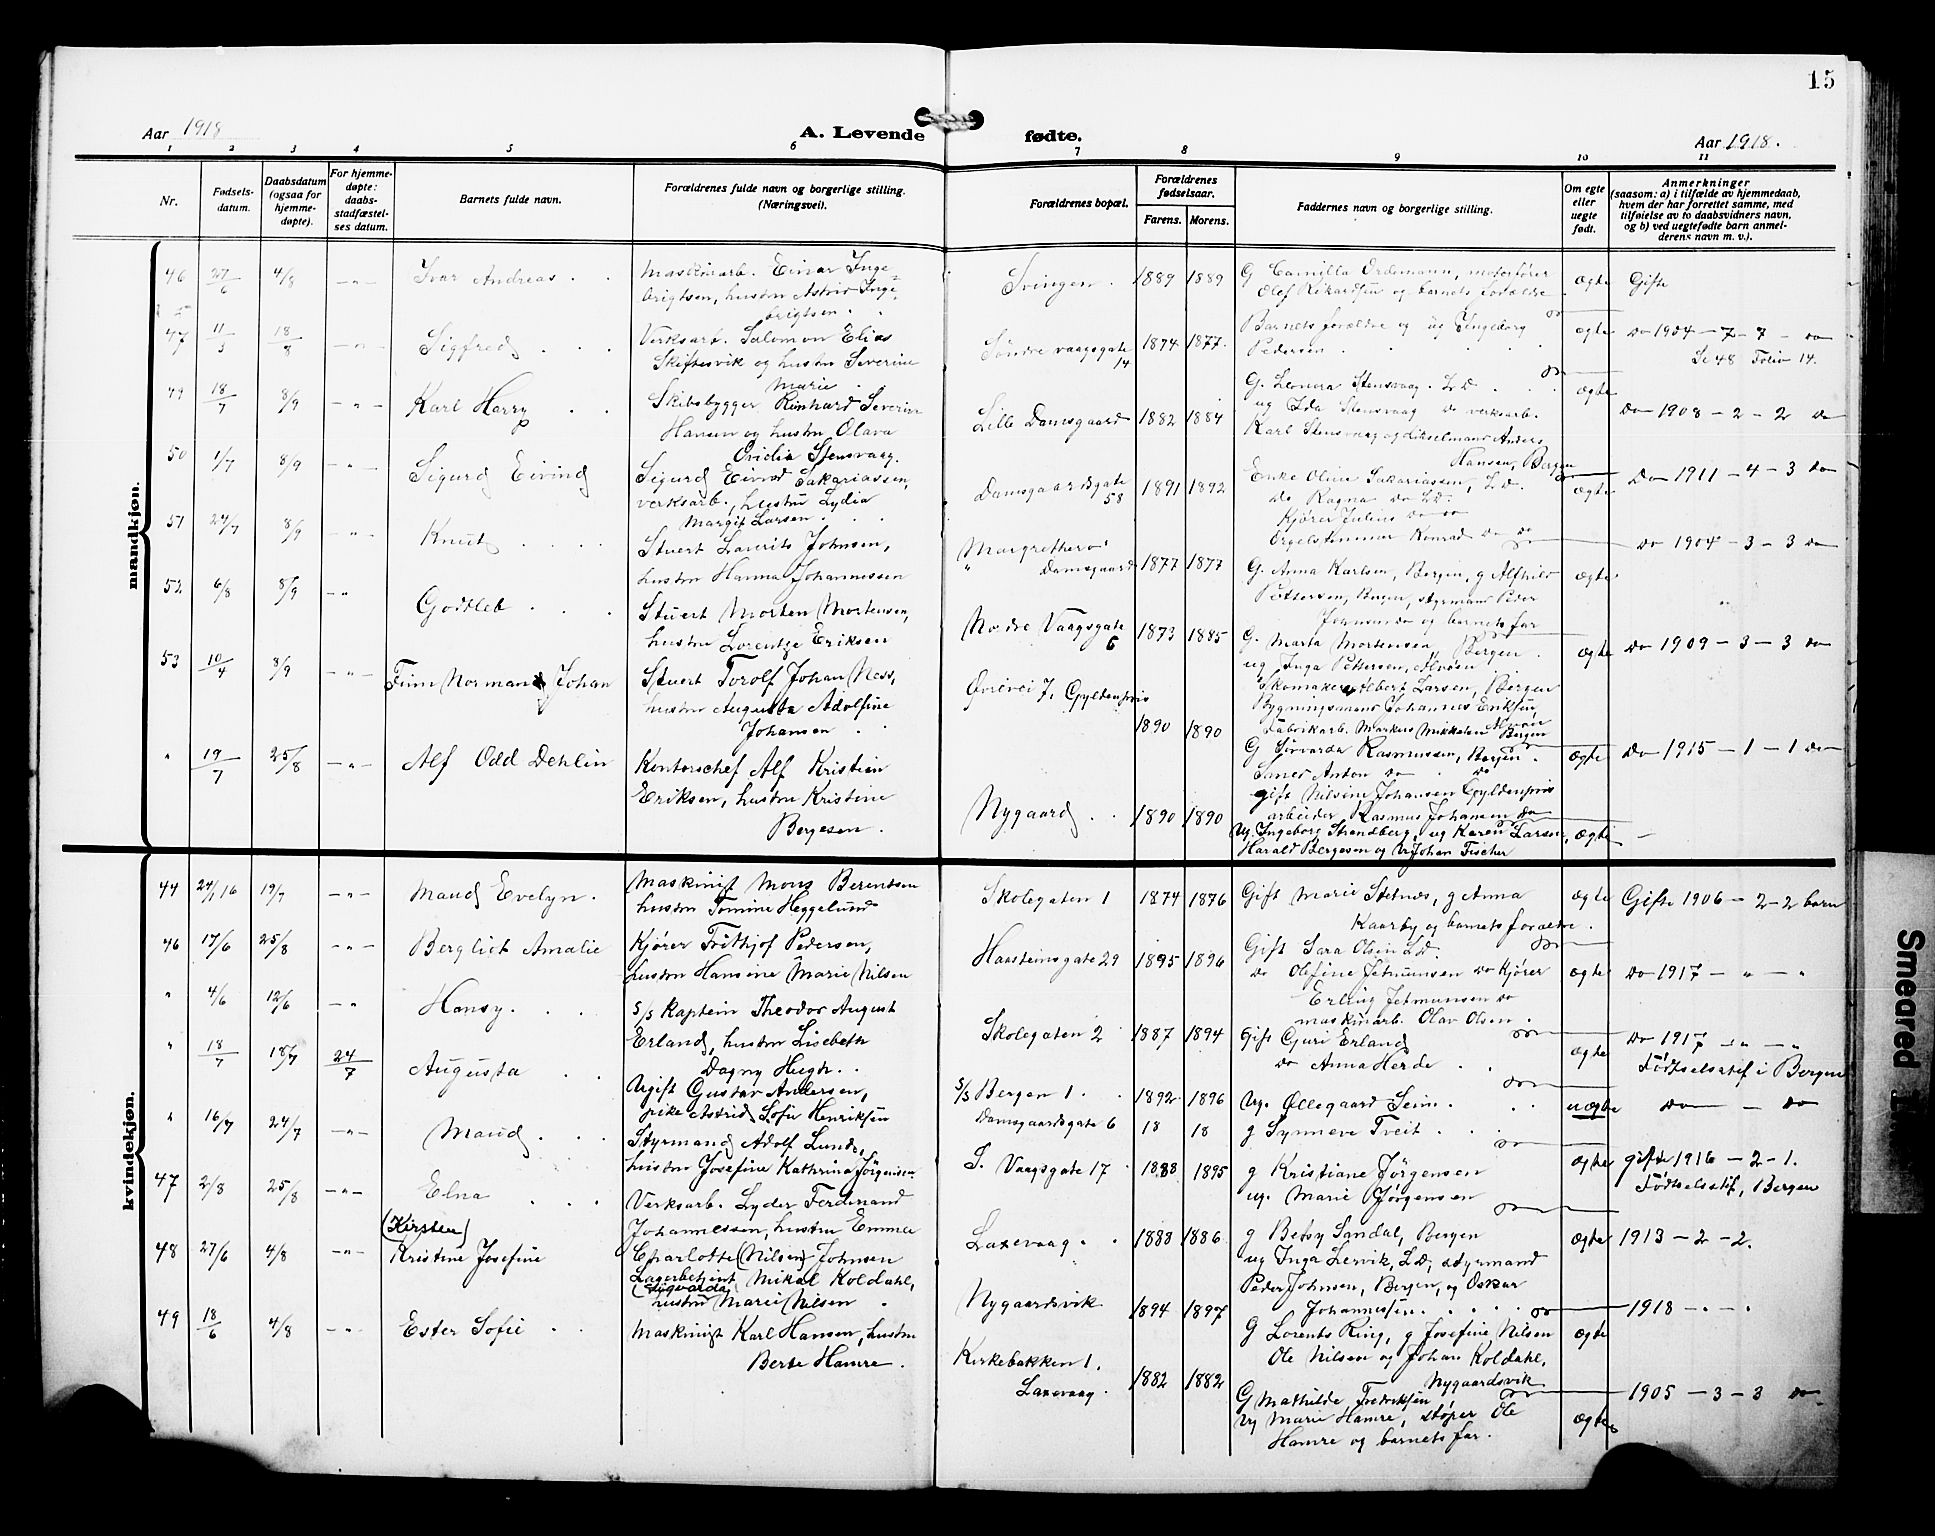 15
Aar 1918
A. Levende fødte.
Aar 1918.
1 2 3 4 5 6 7 8 9 10 11
Nr.
Fødsels-
datum.
Daabsdatum
(ogsaa for
hjemme-
døpte).
For hjemme-
døpte:
daabs-
stadfæstel-
ses datum.
Barnets fulde navn.
Forældrenes fulde navn og borgerlige stilling.
(Næringsvei).
Forældrenes bopæl.
Forældrenes
fødselsaar.
Farens. Morens.
Faddernes navn og borgerlige stilling.
Om egte
eller
uegte
født.
Anmerkninger
(saasom: a) i tilfælde av hjemmedaab,
hvem der har forrettet samme, med
tilføielse av to daabsvidners navn,
og b) ved uegtefødte barn anmel-
derens navn m. v.).
mandkjøn.
46 27/6 4/8 -"- Ivar Andreas . .
Maskinarb. Einar Inge=
brigtsen, hustru Astrid Inge=
brigtsen . .
Svingen . 1889 1889
G Camilla Ordemann, motorfører
Olef Rikardsen og barnets forældre
ægte Gifte
47 11/3 18/8 -"- Sigfred . . .
Verksarb. Salomon Elias
Skiftesvik og hustru Severine
Marie .
Söndre vaagsgate
14
1874 1877.
Barnets forældre og ug Ingeborg
Pedersen
ægte Do 1904 - 7 - 7 - Do
Se 48 Folio 14.
49 18/7 8/9 -"- Karl Harry . .
Skibsbygger Reinhard Severin
Hansen og hustru Olava
Ovidia Stensvaag.
Lille Damsgaard 1882 1884
G. Leonora Stensvaag. LD . .
ug Ida Stensvaag Do verksarb.
Karl Stensvaag og Anders
Hansen, Bergen
ægte Do 1908 - 2 - 2 Do
50 1/7 8/9 -"- Sigurd Eivind
Sigurd Eivind Sakariassen,
verksarb., hustru Lydia
Margit Larsen . . .
Damsgaardsgate
58
1891 1892
Enke Oline Sakariassen, LD.
do Ragna do LD.
Kjører Julius do do
Orgelstemmer Konrad do do
ægte Do 1911 - 4 - 3 Do
51 24/7 8/9 -"- Knut . . . .
Stuert Laurits Johnsen,
hustru Hanna Johannessen
Damsgaard 1877 1877
G. Anna Karlsen, Bergen, g Alfhild
Pettersen, styrmand Peder
Johnsen do og barnets far
ægte Do 1904 - 3 - 3 Do
52 6/8 8/9 -"- Godtleb . . .
Stuert Morten Mortensen,
hustru Lorentze Eriksen
Nordre Vaagsgate
6
1873 1885
G. Marta Mortensen, Bergen .
ug Inga Pettersen,
Skomaker Albert Larsen, Bergen
Johannes Eriksen
Fabrikarb. Markus Mikkelsen Bergen
ægte Do 1909 - 3 - 3 Do
53 10/4 8/9 -"- Finn Norman Johan
Stuert Torolf Johan Ness,
hustru Augusta Adolfine
Johansen . .
Øvrevei 7, Gyldenpris
1890 1890
G Sirvarda Rasmussen, Bergen .
Anton do . do
gift Nilsine Johansen Gyldenpris
arbeider Rasmus Johansen do
ægte Do 1915 - 1 - 1 Do
" 19/7 25/8 -"- Alf Odd Dehlin
Kontorschef Alf Kristian
Eriksen, hustru Kristine
Bergesen .
Nygaard . . 1890 1890
Ug. Ingeborg Strandberg, ug Karen Larsen,
Harald Bergesen og Johan Fischer
ægte -
kvindekjøn.
44 24/1 16 19/7 -"- Maud Evelyn .
Maskinist Mons Berentsen
hustru Tomine Heggelund
Skolegaten 1 1874 1876
Gift Marie Stetnes, g Anna
Kaarby og barnets forældre .
ægte Gifte 1906 - 2 - 2 barn
46 17/6 25/8 -"- Bergliot Amalie
Kjører Frithjof Pedersen,
hustru Hansine Marie Nilsen
Haasteinsgate 29 1895 1896
Gift Sara Olsen LD.
do Olefine Jetmundsen do Kjører
Erling Jetmunsen do
maskinarb. Olav Olsen .
ægte Do 1917 - " - "
" 4/6 12/6 -" Hansy . . .
S/S Kaptein Theodor August
Erland, hustru Lisebeth
Dagny Hugh . .
Skolegaten 2 1887 1894
Gift Guri Erland
do Anna Herde . .
ægte Do 1917 - " - "
Fødselsatt. i Bergen
" 18/7 18/7 24/7 Augusta . .
Ugift Gustav Andersen,
pike Astrid Sofie Henriksen
S/S Bergen 1 . . 1892. 1896
Damsgaardsgate 6 18 18
Ug. Øllegaard Seim . . .
g Synneve Tveit . . .
uægte Do - Do
" 16/7 24/7 -"- Maud . . .
Styrmand Adolf Lunde,
hustru Josefine Kathrina Jørgensen
S. Vaagsgate 17 . 1888 1895
g Kristiane Jørgensen
ug. Marie Jørgensen
ægte gifte 1916 - 2 - 1.
Fødselsatt., Bergen
47 2/8 25/8 -"- Elna . .
Verksarb. Lyder Ferdinand
Johannessen, hustru Emma
Charlotte (Nilsen) Johnsen
Laxevaag . . 1888 1886
g Betsy Sandal, Bergen
ug Inga Lervik, LD, styrmand
Peder Johnsen, Bergen, og Oskar
Johannessen . . . . .
ægte 1913 - 2 - 2.
48 27/6 4/8 -"- (Kirsten)
Kristine Josefine
Lagerbetjent Mikal Koldahl,
(Sigvarda)
hustru Marie Nilsen .
Nygaardsvik 1894 1897
G Lorents Ring, g Josefine Nilsen
Ole Nilsen og Johan Koldahl,
Nygaardsvik
ægte 1918 - . - .
49 18/6 4/8 -"- Ester Sofie . .
Maskinist Karl Hansen, hustru
Berte Hamre .
Kirkebakken 1.
Laxevaag .
1882 1882
G Mathilde Fredriksen
Ug Marie Hamre, støper Ole
Hamre og barnets far .
ægte 1905 - 3 - 3 Do
Smeared